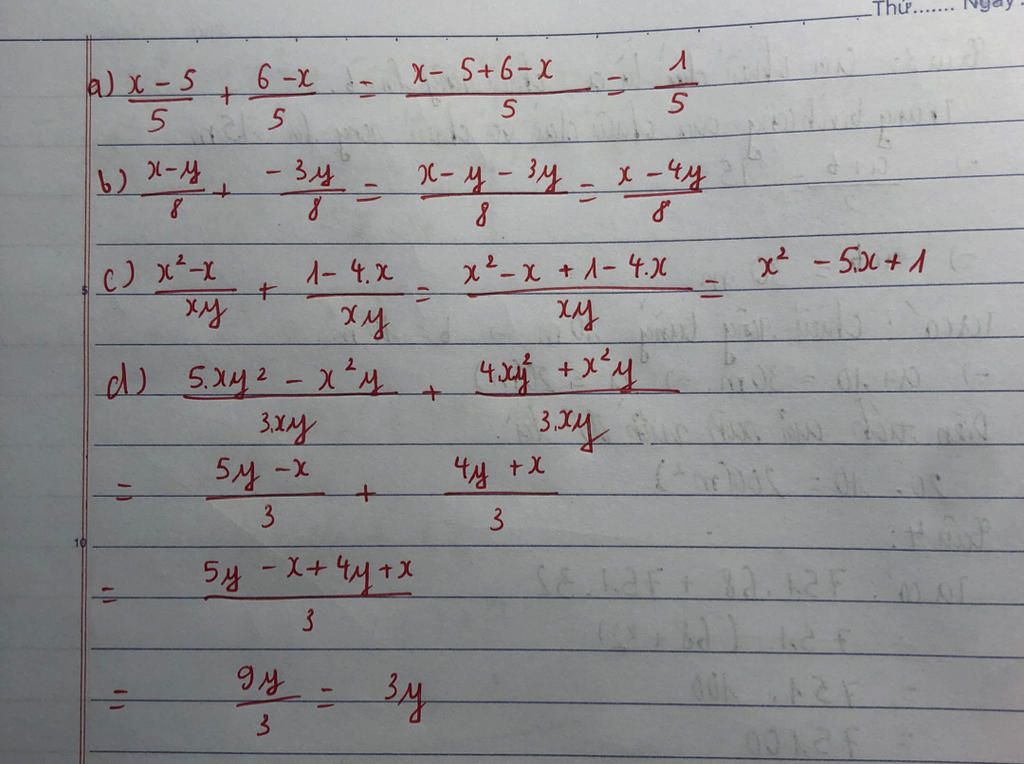 Thứ....... Ngày
a) x - 5 / 5 + 6 - x / 5 = x - 5 + 6 - x / 5 = 1 / 5
b) x - y / 8 + - 3y / 8 = x - y - 3y / 8 = x - 4y / 8
5
c) x² - x / xy + 1 - 4.x / xy = x² - x + 1 - 4.x / xy = x² - 5.x + 1
d) 5.xy² - x²y / 3.xy + 4.xy² + x²y / 3.xy
= 5y - x / 3 + 4y + x / 3
10
= 5y - x + 4y + x / 3
= 9y / 3 = 3y